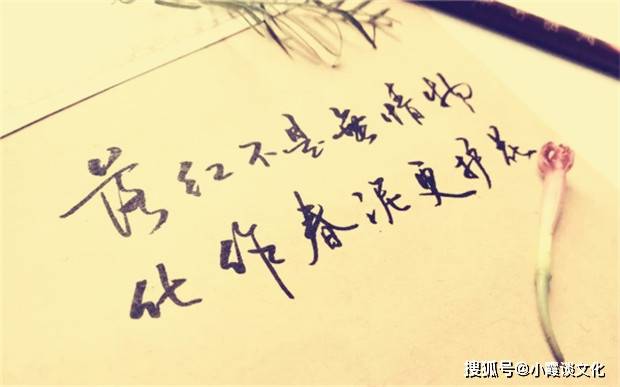 落红不是無情物
化作春泥更护花
搜狐号@小霞谈文化